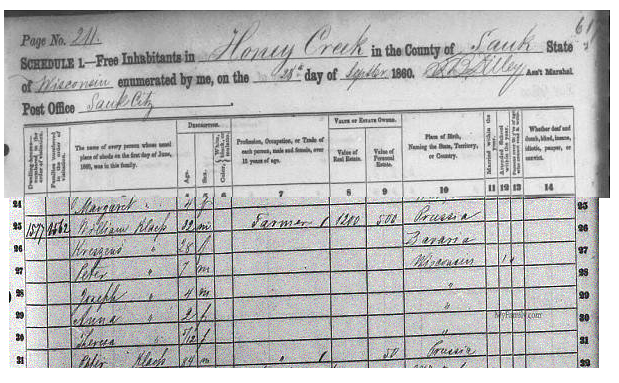 Page No. 211.
61
SCHEDULE 1.—Free Inhabitants in Honey Creek in the County of Sauk State
of Wisconsin enumerated by me, on the 28th day of Septber 1860. Ass't Marshal.
Post Office Sauk City
Dwelling-houses— numbered in the order of visitation.
Families numbered in the order of visitation.
The name of every person whose usual place of abode on the first day of June, 1860, was in this family.
DESCRIPTION.
Age.
Sex.
Color,
Profession, Occupation, or Trade of each person, male and female, over 15 years of age.
VALUE OF ESTATE OWNED.
Value of Real Estate.
Value of Personal Estate.
Place of Birth, Naming the State, Territory, or Country.
Married within the year.
Attended School within the year.
Whether deaf and dumb, blind, insane, idiotic, pauper, or convict.
7 8 9 10 11 12 13 14
24 Margaret " 4 f
25 1577 1562 William Klass 32 m Farmer 1200 500 Prussia 25
26 " 28 f Bavaria 26
27 Peter " 7 m Wisconsin 1 27
28 Joseph " 4 m " 28
29 Anna " 2 f " 29
30 Theresa " /12 f " 30
31 Peter Klass m " 50 Prussia
MyFamily.com